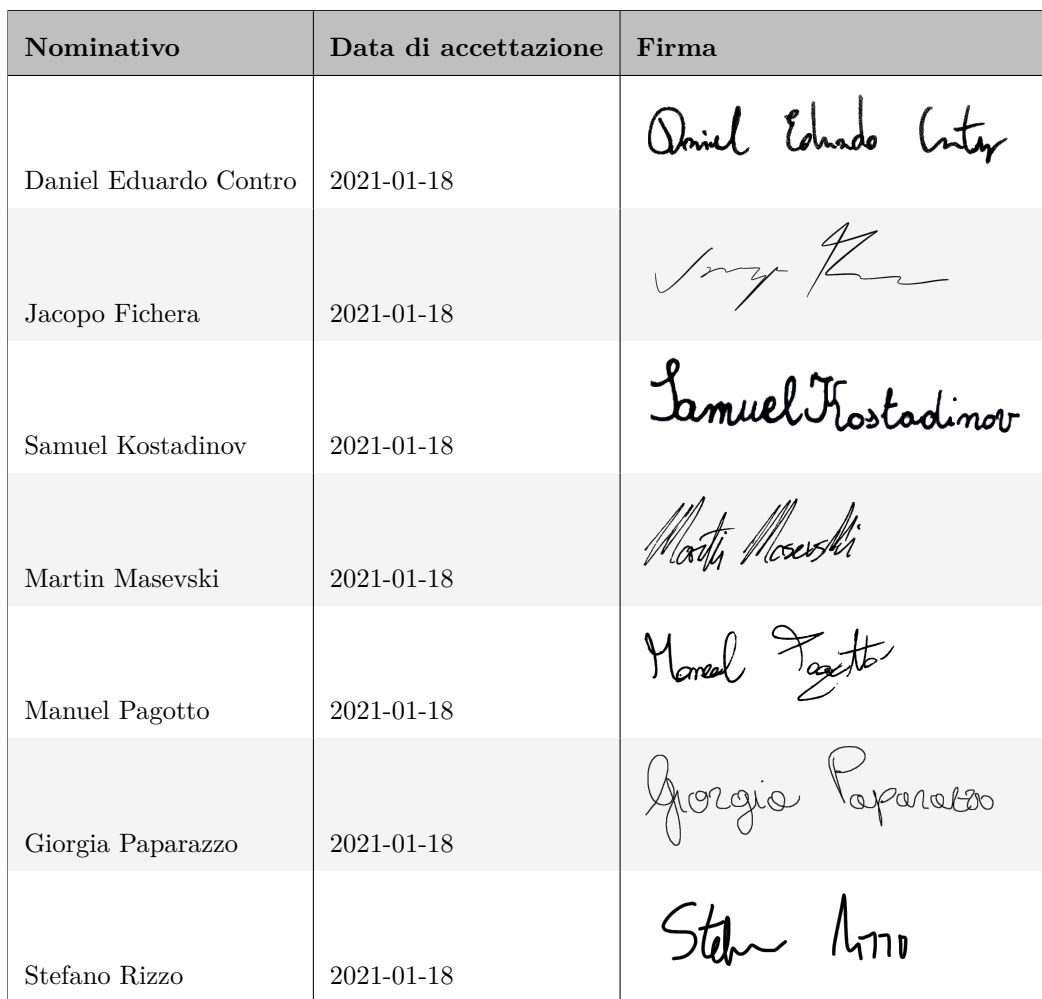 Nominativo Data di accettazione Firma
Daniel Eduardo Contro 2021-01-18 Daniel Eduardo Contro
Jacopo Fichera 2021-01-18
Samuel Kostadinov 2021-01-18 Samuel Kostadinov
Martin Masevski 2021-01-18 Martin Masevski
Manuel Pagotto 2021-01-18 Manuel Pagotto
Giorgia Paparazzo 2021-01-18 Giorgia Paparazzo
Stefano Rizzo 2021-01-18 Rizzo